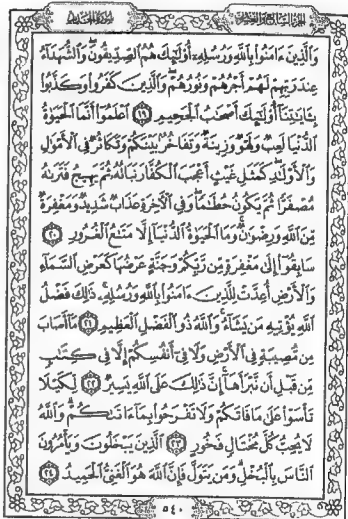 الجزء السابع والعشرون
سورة الحديد
وَالَّذِينَ ءَامَنُوا بِاللَّهِ وَرُسُلِهِ أُولَٰئِكَ هُمُ الصِّدِّيقُونَ وَالشُّهَدَاءُ
عِندَ رَبِّهِمْ لَهُمْ أَجْرُهُمْ وَنُورُهُمْ وَالَّذِينَ كَفَرُوا وَكَذَّبُوا
بِـَٔايَٰتِنَا أُولَٰئِكَ أَصْحَٰبُ الْجَحِيمِ ١٩ اعْلَمُوا أَنَّمَا الْحَيَوٰةُ
الدُّنْيَا لَعِبٌ وَلَهْوٌ وَزِينَةٌ وَتَفَاخُرٌ بَيْنَكُمْ وَتَكَاثُرٌ فِي الْأَمْوَٰلِ
وَالْأَوْلَٰدِ كَمَثَلِ غَيْثٍ أَعْجَبَ الْكُفَّارَ نَبَاتُهُ ثُمَّ يَهِيجُ فَتَرَىٰهُ
مُصْفَرًّا ثُمَّ يَكُونُ حُطَٰمًا وَفِي الْءَاخِرَةِ عَذَابٌ شَدِيدٌ وَمَغْفِرَةٌ
مِّنَ اللَّهِ وَرِضْوَٰنٌ وَمَا الْحَيَوٰةُ الدُّنْيَا إِلَّا مَتَٰعُ الْغُرُورِ ٢٠
سَابِقُوا إِلَىٰ مَغْفِرَةٍ مِّن رَّبِّكُمْ وَجَنَّةٍ عَرْضُهَا كَعَرْضِ السَّمَاءِ
وَالْأَرْضِ أُعِدَّتْ لِلَّذِينَ ءَامَنُوا بِاللَّهِ وَرُسُلِهِ ذَٰلِكَ فَضْلُ
اللَّهِ يُؤْتِيهِ مَن يَشَاءُ وَاللَّهُ ذُو الْفَضْلِ الْعَظِيمِ ٢١ مَا أَصَابَ
مِن مُّصِيبَةٍ فِي الْأَرْضِ وَلَا فِي أَنفُسِكُمْ إِلَّا فِي كِتَٰبٍ
مِّن قَبْلِ أَن نَّبْرَأَهَا إِنَّ ذَٰلِكَ عَلَى اللَّهِ يَسِيرٌ ٢٢ لِّكَيْلَا
تَأْسَوْا عَلَىٰ مَا فَاتَكُمْ وَلَا تَفْرَحُوا بِمَا ءَاتَىٰكُمْ وَاللَّهُ
لَا يُحِبُّ كُلَّ مُخْتَالٍ فَخُورٍ ٢٣ الَّذِينَ يَبْخَلُونَ وَيَأْمُرُونَ
النَّاسَ بِالْبُخْلِ وَمَن يَتَوَلَّ فَإِنَّ اللَّهَ هُوَ الْغَنِيُّ الْحَمِيدُ ٢٤
٥٤٠